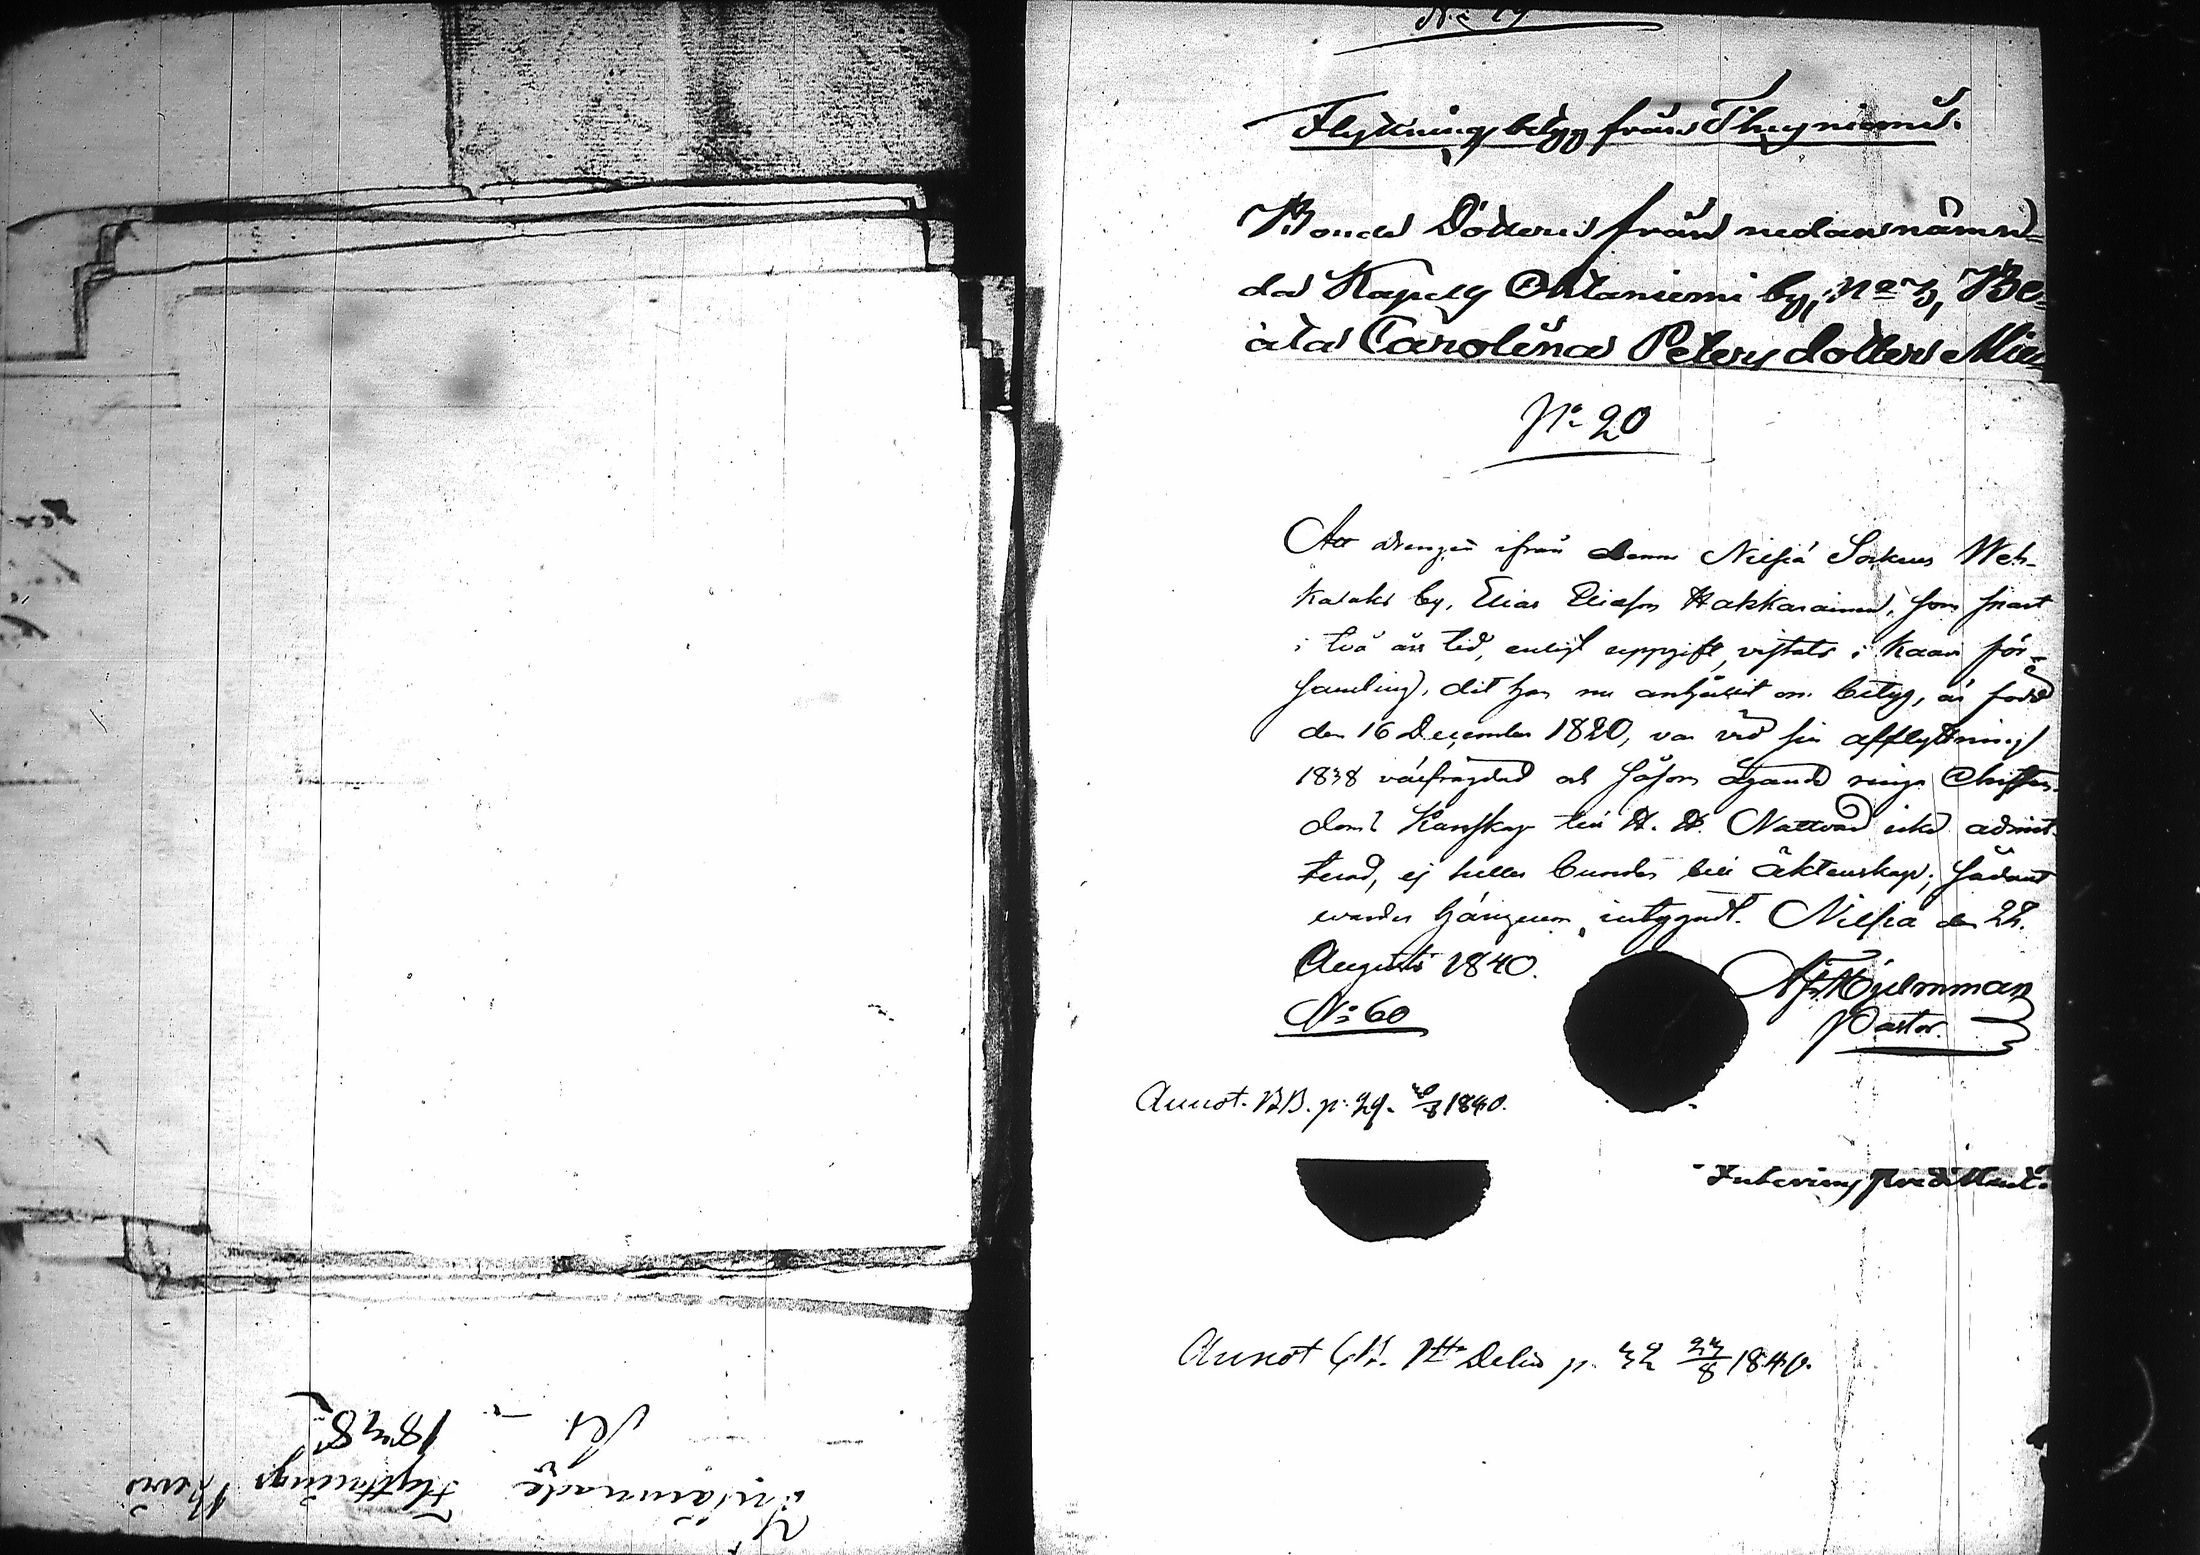 No 19
Flyttnings betyg från Thyrniemi.
Bonde Dottern från nedannämn-
da Kapell Ohtaniemi by, No 3, Be-
ata Carolina Petersdotter
No 20
Att drengen ifrån denne Nilsiä Sockns Weh-
kalaks by, Elias Eliasson Hakkarainen, som snart
i två års tid, enligt uppgift, vistats i Kaavi för-
samling, dit han nu anhållit om betyg, är född
den 16 December 1820, var vid sin afflyttning
1838 välfrägdad och såsom ägande ringa Christen-
doms Kunskap till H. H. Nattvard icke admit-
terad, ej heller bunden till äktenskap; sådant
warder härigenom intygadt. Nilsiä den 22.
Augusti 1840.
No 60
Hjelmman
Pastor.
Annot. BB. p. 29. 1840.
Annot 1sta Delen p. 32 23/8 1840.
Utlämnade Flyttnings Bevis
1838